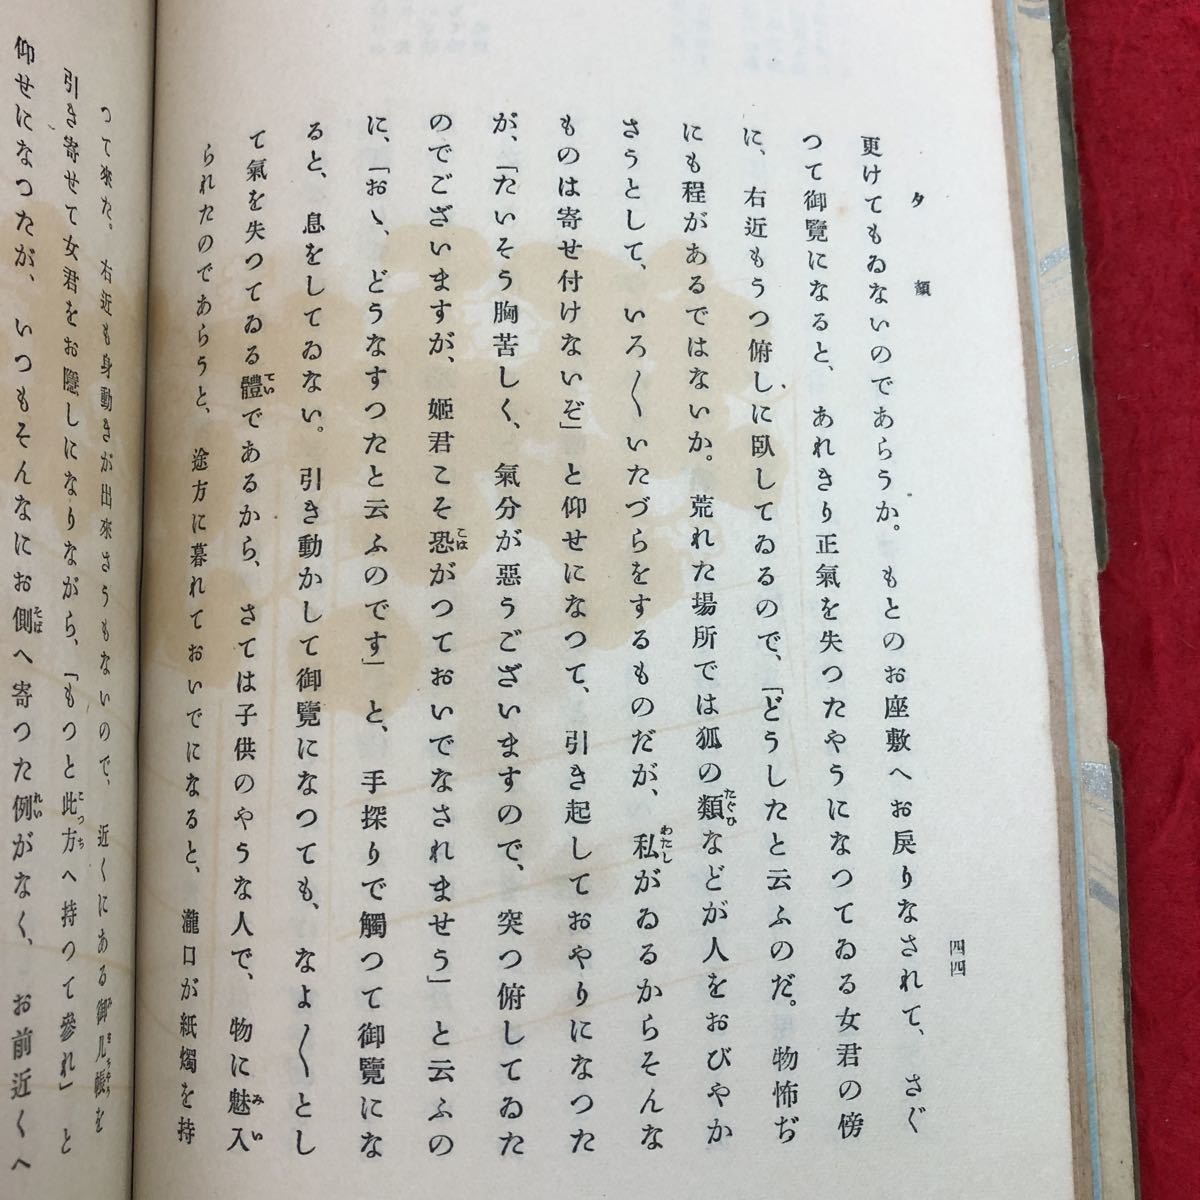 夕顔
四四
更けてもゐないのであらうか。もとのお座敷へお戻りなされて、さぐ
つて御覽になると、あれきり正氣を失つたやうになつてゐる女君の傍
に、右近もうつ俯しに臥してゐるので、「どうしたと云ふのだ。物怖ぢ
にも程があるではないか。荒れた場所では狐の類などが人をおびやか
さうとして、いろ〱いたづらをするものだが、私がゐるからそんな
ものは寄せ付けないぞ」と仰せになつて、引き起しておやりになつた
が、「たいそう胸苦しく、氣分が惡うございますので、突つ俯してゐた
のでございますが、姬君こそ恐がつておいでなされませう」と云ふの
に、「おゝ、どうなすつたと云ふのです」と、手探りで觸つて御覽にな
ると、息をしてゐない。引き動かして御覽になつても、なよ〱とし
て氣を失つてゐる體であるから、さては子供のやうな人で、物に魅入
られたのであらうと、途方に暮れておいでになると、瀧口が紙燭を持
つて來た。右近も身動きが出來さうもないので、近くにある御几帳を
引き寄せて女君をお隱しになりながら、「もつと此方へ持つて參れ」と
仰せになつたが、いつもそんなにお側へ寄つた例がなく、お前近くへ